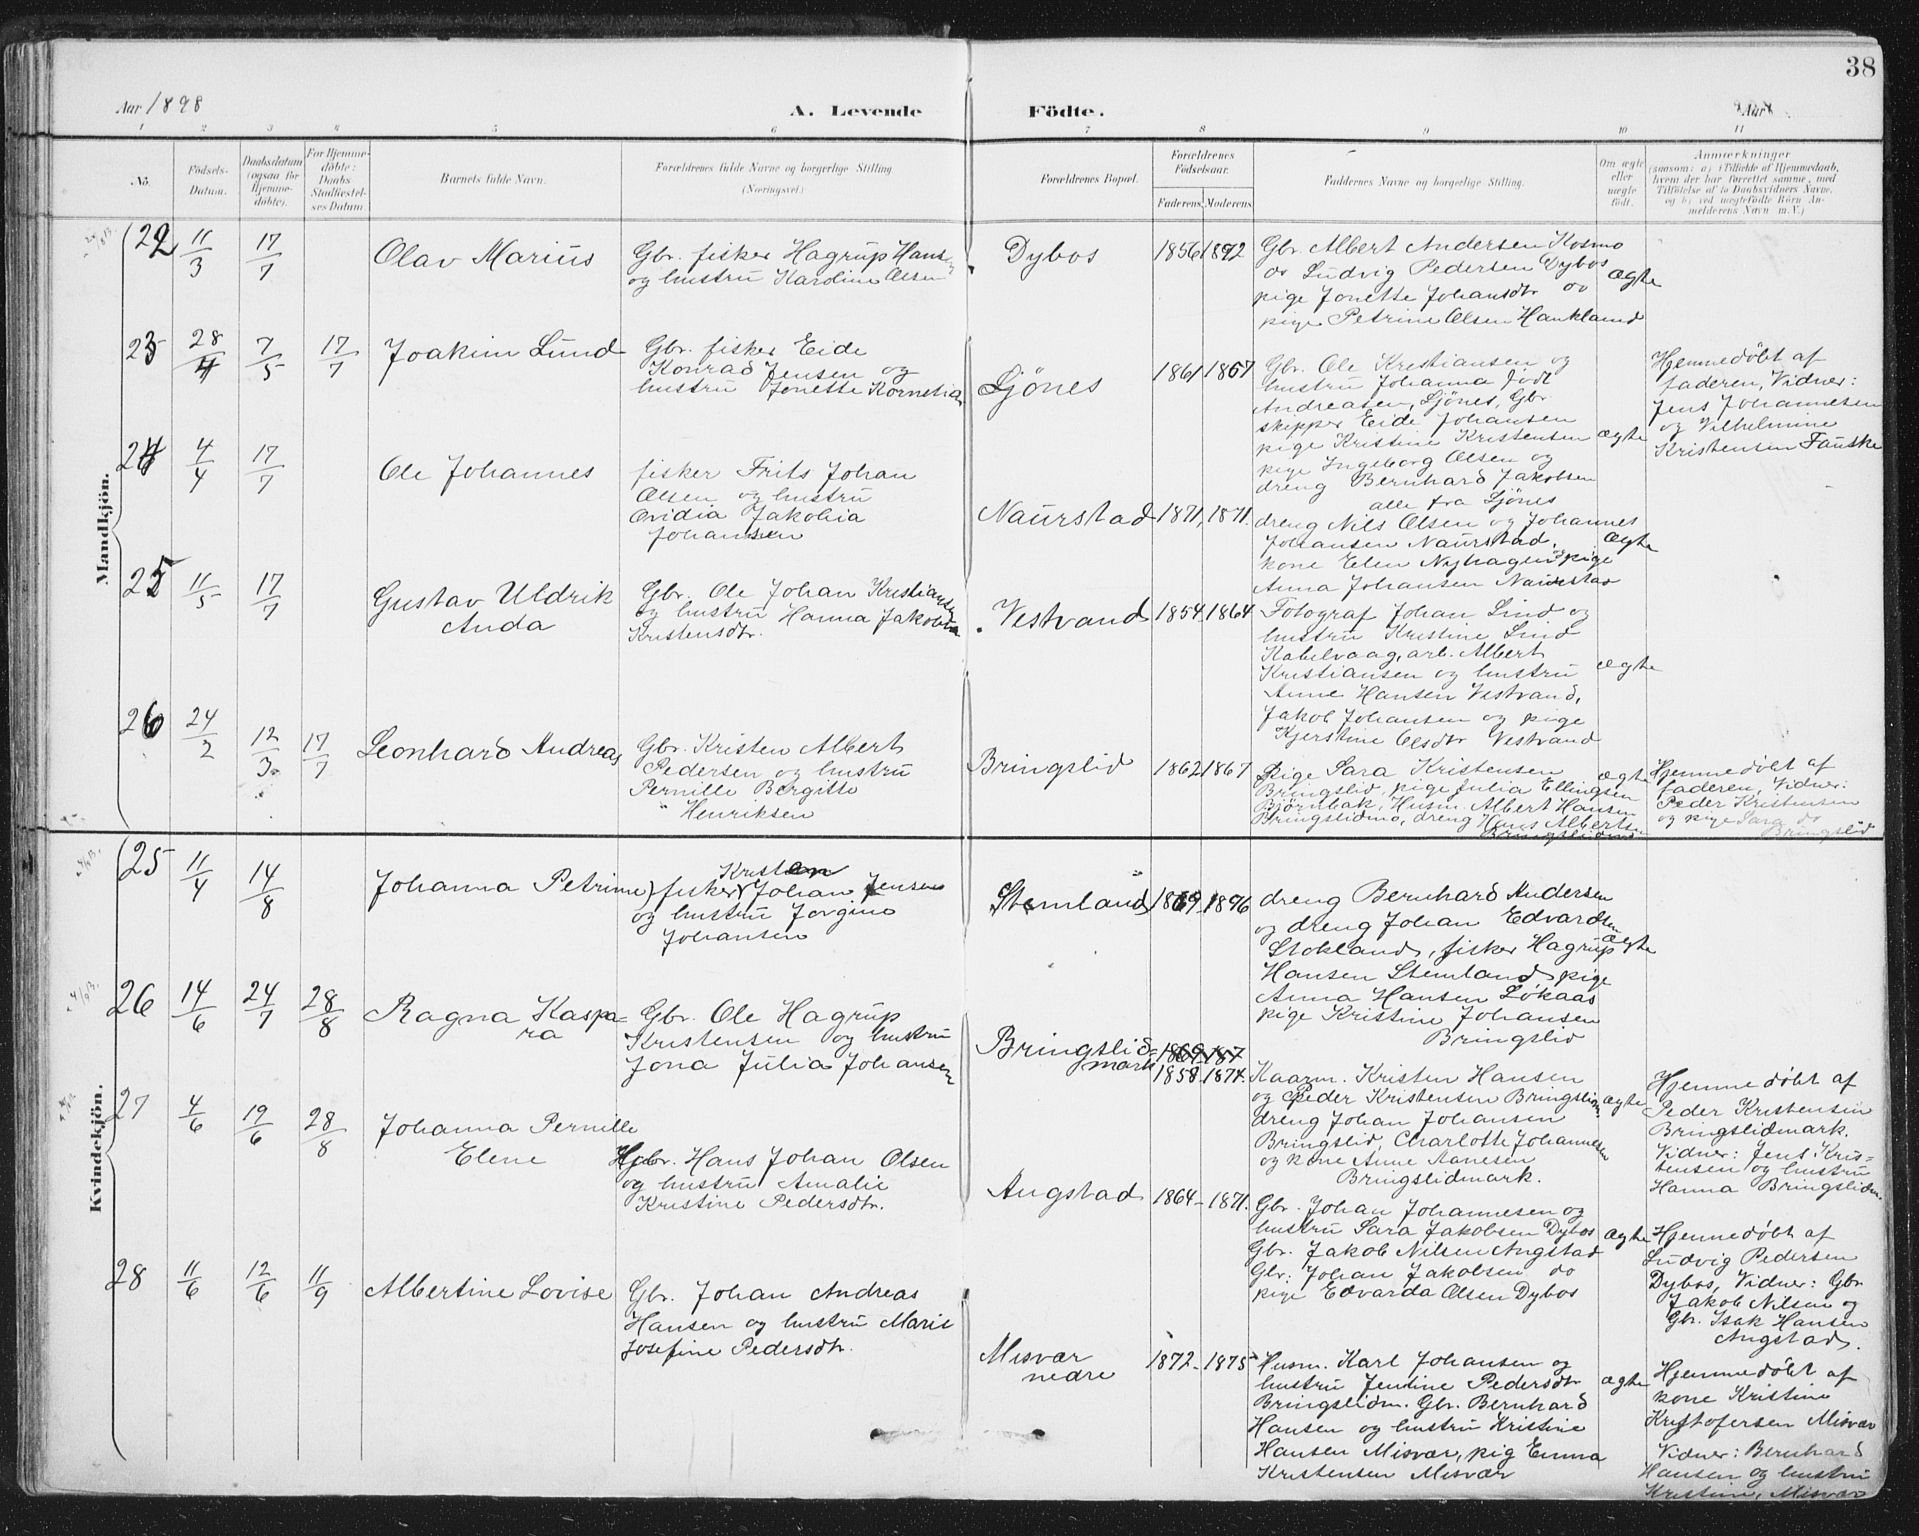 38
Aar 1898
A. Levende
Födte.
Aar
1 2 3 4 5 6 7 8 9 10 11
No.
Födsels-
Datum.
Daabsdatum
(ogsaa for
Hjemme-
döbte).
For Hjemme-
döbte:
Daabs
Stadfæstel-
ses Datum.
Barnets fulde Navn.
Forældrenes fulde Navne og borgerlige Stilling
(Næringsvei.)
Forældrenes Bopæl.
Forældrenes
Födselsaar.
Faderens. Moderens.
Faddernes Navne og borgerlige Stilling.
Om ægte
eller
uægte
födt.
Anmærkninger
(saasom: a) i Tilfælde af Hjemmedaab,
hvem der har forrettet samme, med
Tilföielse af to Daabsvidners Navne,
og b) ved uægtefödte Börn An-
melderens Navn m. V.)
Mandkjön.
22 11/3 17/7
Olav Marius
Gbr. fisker Hagrup Hans
og hustru Karoline Olsen
Dybos
1856 1892
Gbr. Albert Andersen Kosmo
do Ludvig Pedersen Dybos
pige Jonette Johansdtr do
pige Petrine Olsen Haukland
ægte
23 28/4 7/5 17/7
Joakim Lund
Gbr. fisker Eide
Konrad Jensen og
hustru Jonette Kornelia
Ljönes
1861 1867
Gbr. Ole Kristiansen og
hustru Johanna født
Andreasen, Ljönes, Gbr
skipper Eide Johansen
pige Kristine Kristensen
pige Ingeborg Olsen og
dreng Bernhard Jakobsen
alle fra Ljönes
ægte
Hjemmedøbt af
faderen, Vidner:
Jens Johannesen
og Vilhelmine
Kristensen Fauske
24 4/4 17/7
Ole Johannes
fisker Frits Johan
Olsen og hustru
Ovidia Jakobia
Johansen
Naurstad
1871, 1871.
dreng Nils Olsen og Johannes
Johansen Naurstad,
kone Elen Nyhagen og pige
Anna Johansen Naurstad
ægte
25 11/5 17/7
Gustav Uldrik
Anda
Gbr. Ole Johan Kristiansen
og hustru Hanna Jakobine
Kristensdtr.
Vestvand
1854 1864
Fotograf Johan Lind og
hustru Kristine Lind
Kabelvaag, arb. Albert
Kristiansen og hustru
Anne Hansen Vestvand,
Jakob Johansen og pige
Kjerstine Olsdtr Vestvand
ægte
26 24/2 12/3 17/7
Leonhard Andreas
Gbr. Kristen Albert
Pedersen og hustru
Pernille Bergitte
Henriksen
Bringslid
1862 1867
pige Sara Kristensen
Bringslid, pige Julia Ellingsen
Bjørnbak, Husm. Albert Hansen
Bringslidmo, dreng Hans Albertsen
Bringslidmo
ægte
Hjemmedøbt af
faderen, Vidner:
Peder Kristensen
og pige Sara do
Bringslid
Kvindekjön.
25 11/4 14/8
Johanna Petrine
Kristen
fisker Johan Jensen
og hustru Jorgine
Johansen
Stemland
1869 1896
dreng Bernhard Andersen
og dreng Johan Edvardsen
Stokland, fisker Hagrup
Hansen Stemland, pige
Anna Hansen Løkaas
pige Kristine Johansen
Bringslid
ægte
26 14/6 24/7 28/8
Ragna Kaspa=
ra
Gbr. Ole Hagrup
Kristensen og hustru
Jona Julia Johansen
Bringslid=
mark
1869 187
1858 1874.
Kaarm. Kristen Hansen
og Peder Kristensen Bringslidm.
dreng Johan Johansen
Bringslid, Charlotte Johannesen
og kone Anne Aanesen
Bringslidmark.
ægte
Hjemmedøbt af
Peder Kristensen
Bringslidmark.
Vidner: Jens Kris=
tensen og hustru
Hanna Bringslidm.
27 4/6 19/6 28/8
Johanna Pernille
Elene
Gbr. Hans Johan Olsen
og hustru Amalie
Kristine Pedersdtr.
Angstad
1864 - 1871.
Gbr. Johan Johannesen og
hustru Sara Jakobsen Dybos
Gbr. Jakob Nilsen Angstad
Gbr: Johan Jakobsen do
pige Edvarda Olsen Dybos
ægte
Hjemmedøbt af
Ludvig Pedersen
Dybos, Vidner: Gbr
Jakob Nilsen og
Gbr. Isak Hansen
Angstad.
28 11/6 12/6 11/9
Albertine Lovise
Gbr. Johan Andreas
Hansen og hustru Marie
Josefine Pedersdtr.
Misvær
nedre
1872 - 1875
Husm. Karl Johansen og
hustru Jentine Pedersdtr
Bringslidm. Gbr. Bernhard
Hansen og hustru Kristine
Hansen Misvær, pig Emma
Kristensen Misvær
ægte
Hjemmedøbt af
kone Kristine
Kristofersen Misvær
Vidner: Bernhard
Hansen og hustru
Kristine, Misvær